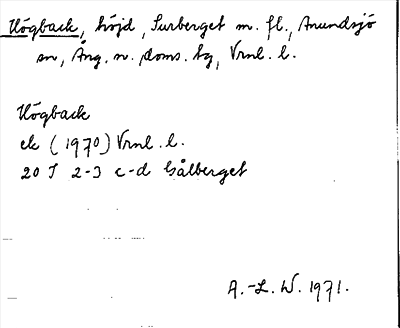 Högback, höjd, Surberget m. fl., Anundsjö
sn, Ång. n. doms. tg, Vrnl. l.
Högback
ek (1970) Vrnl. l.
20 J 2-3 c-d Gålberget
A.-L. W. 1971.